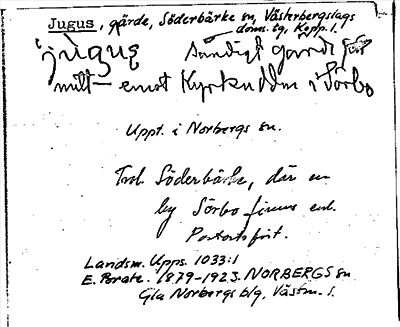 Jugus, gärde, Söderbärke sn, Västerbergslags
doms. tg, Kopp. l.
jugus sandigt gärde
mitt emot Kyrkudden i Sörbo
Uppt. i Norbergs sn.
Trol. Söderbärke, där en
by Sörbo finns enl.
Postortsfört.
Landsm. Upps. 1033:1
E. Brate. 1879-1923. NORBERGS sn
Gla Norbergs blg, Västm. l.